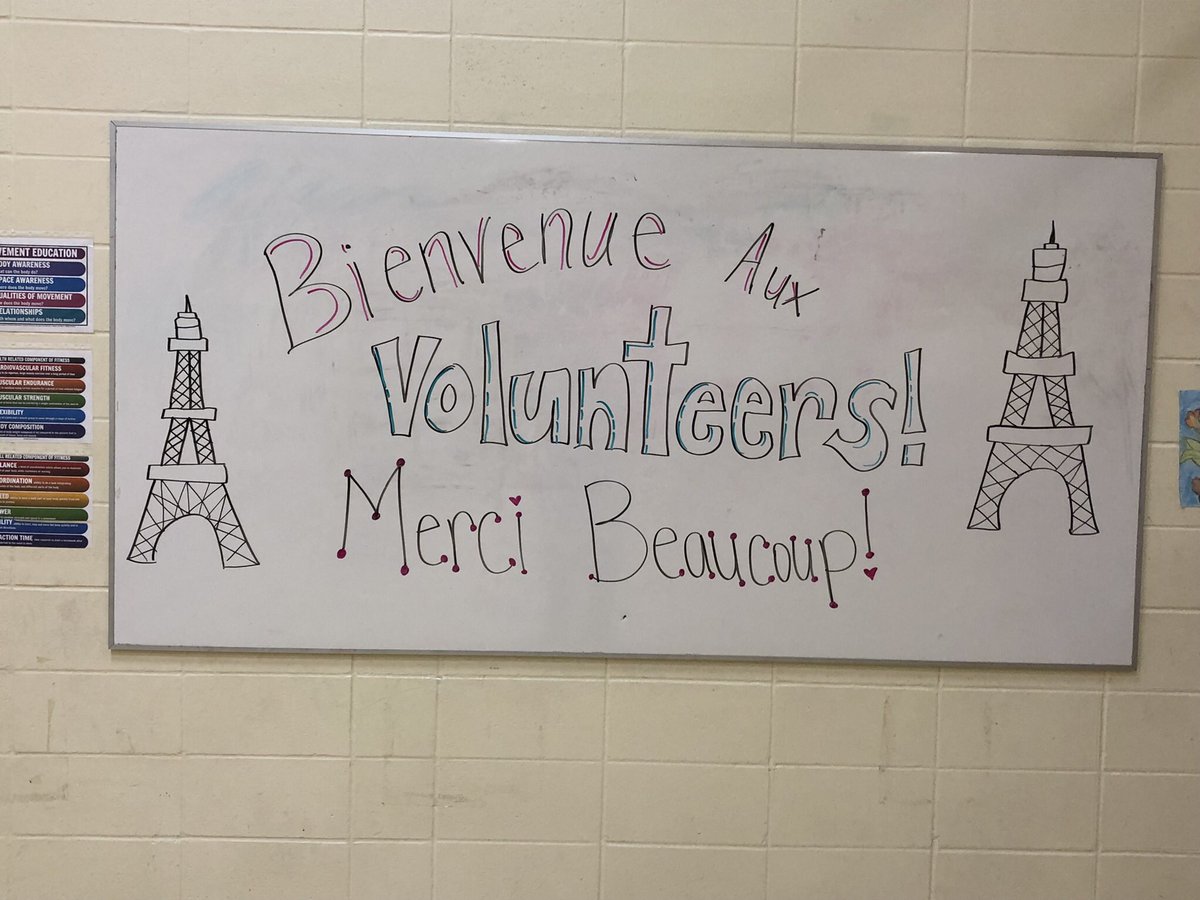 Bienvenue Aux
Volunteers!
Merci Beaucoup!
VEMENT EDUCATION
ODY AWARENESS
PACE AWARENESS
UALITIES OF MOVEMENT
ELATIONSHIPS
LTH RELATED COMPONENT OF FITNESS
ARDIOVASCULAR FITNESS
USCULAR ENDURANCE
USCULAR STRENGTH
EXIBILITY
ODY COMPOSITION
LL RELATED COMPONENT OF FITNESS
LANCE
ORDINATION
EED
WER
ILITY
ACTION TIME